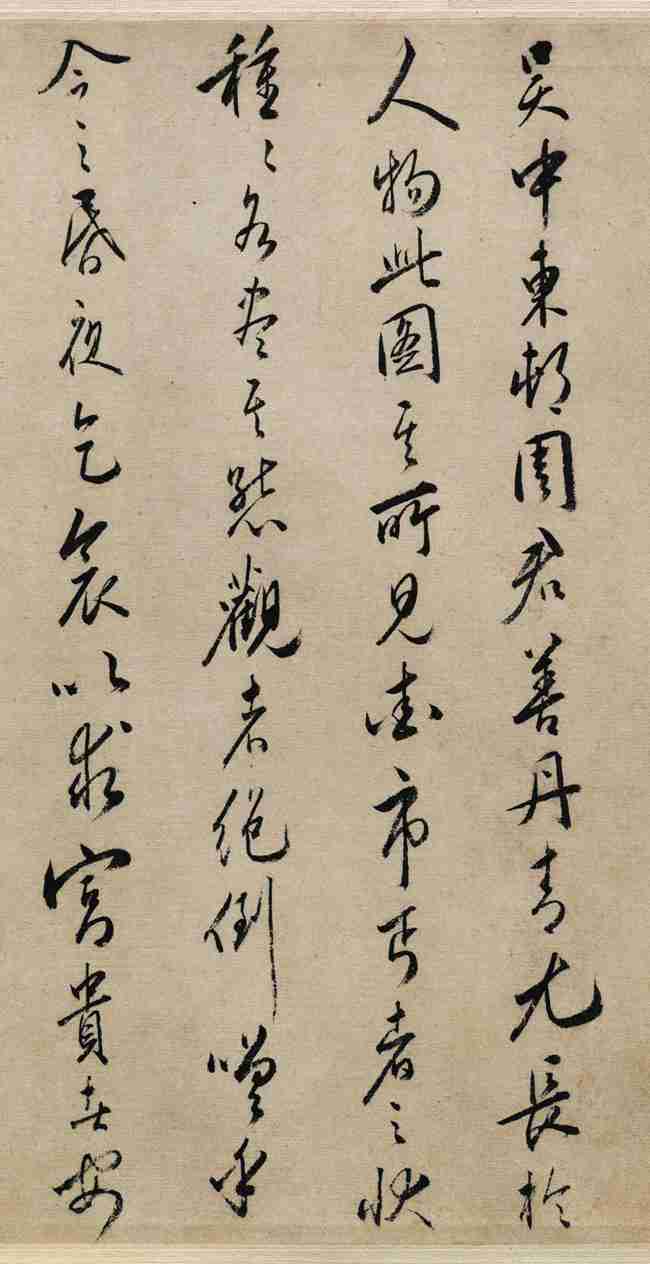 吳中東邨周君善丹青尤長於
人物此圖其所見盡市丐者之狀
種種各盡其態觀者絕倒嗟乎
今之昏夜乞哀以求富貴者安